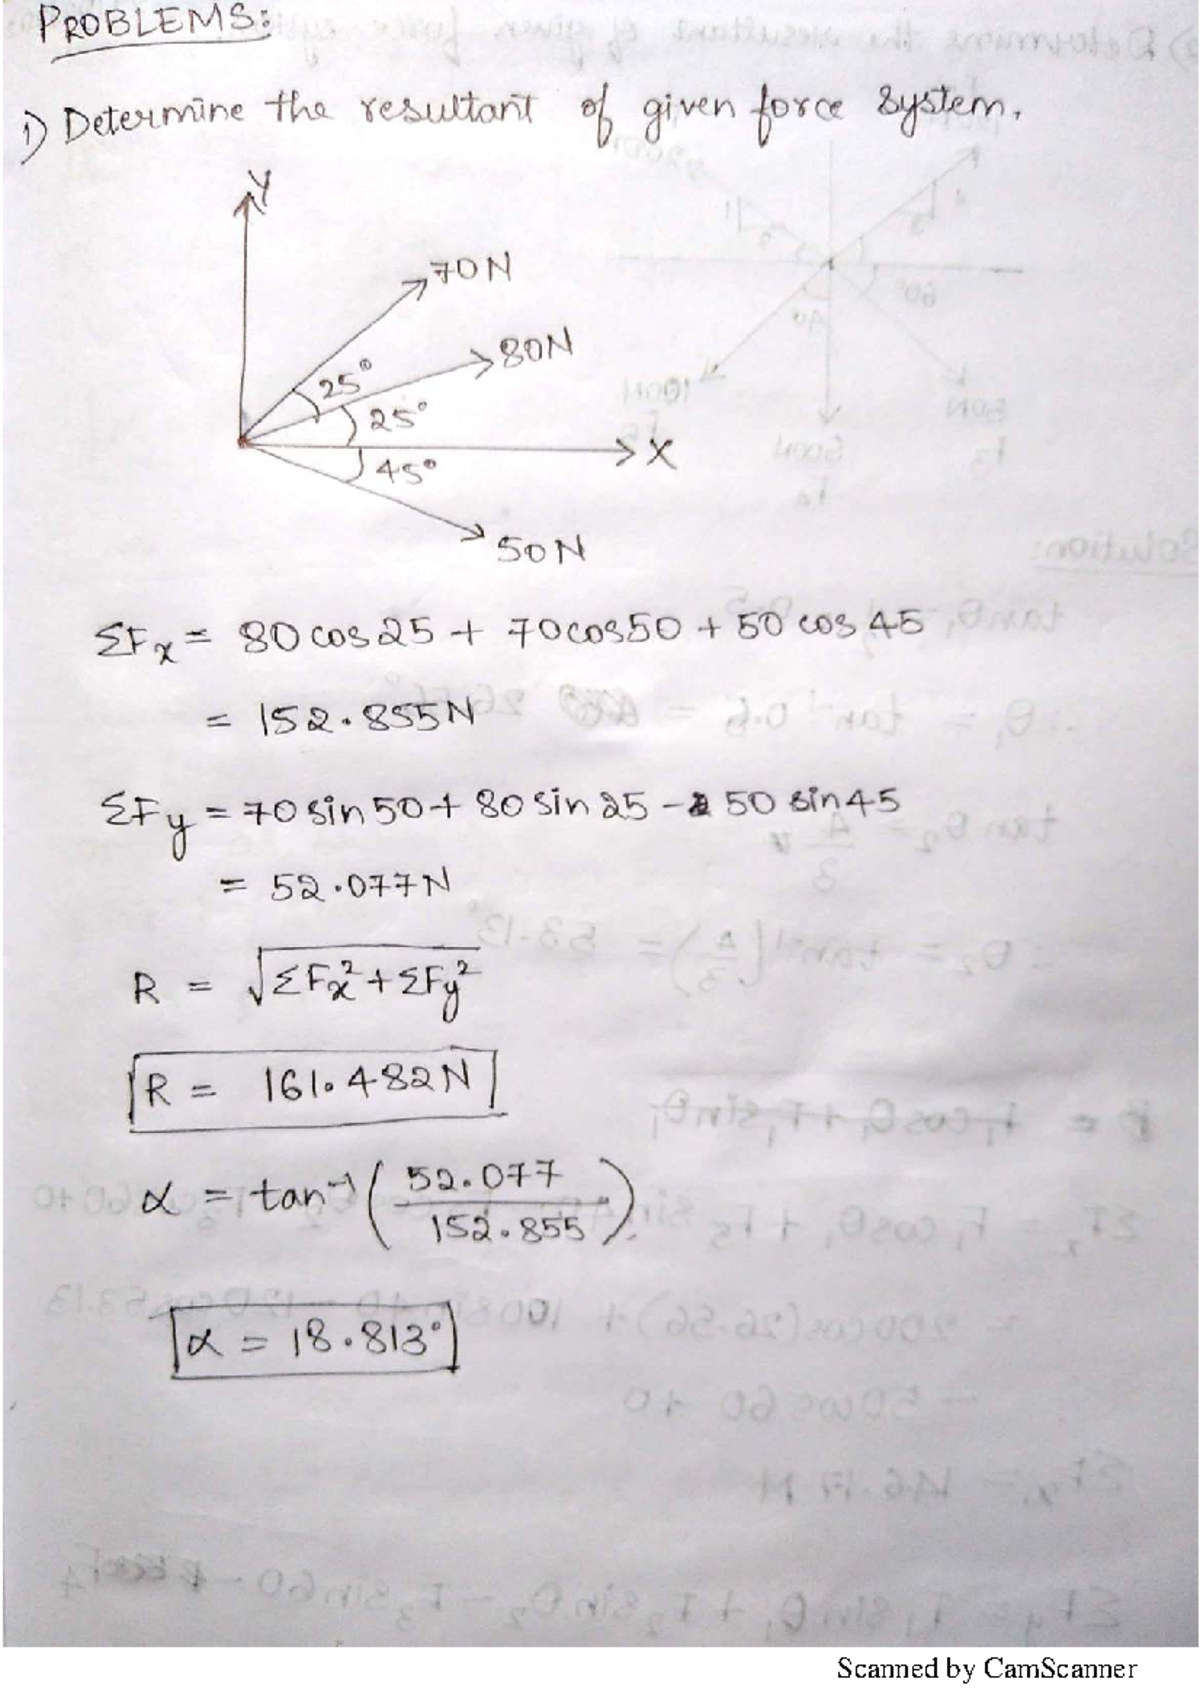 PROBLEMS:
1) Determine the resultant of given force system.
Y
70N
80N
25°
25°
X
45°
50N
ΣFx = 80 cos 25 + 70 cos 50 + 50 cos 45
= 152.855N
ΣFy = 70 sin 50 + 80 sin 25 - 50 sin 45
= 52.077N
R = √ΣFx² + ΣFy²
R = 161.482N
α = tan⁻¹ (52.077 / 152.855).
α = 18.813°
Scanned by CamScanner